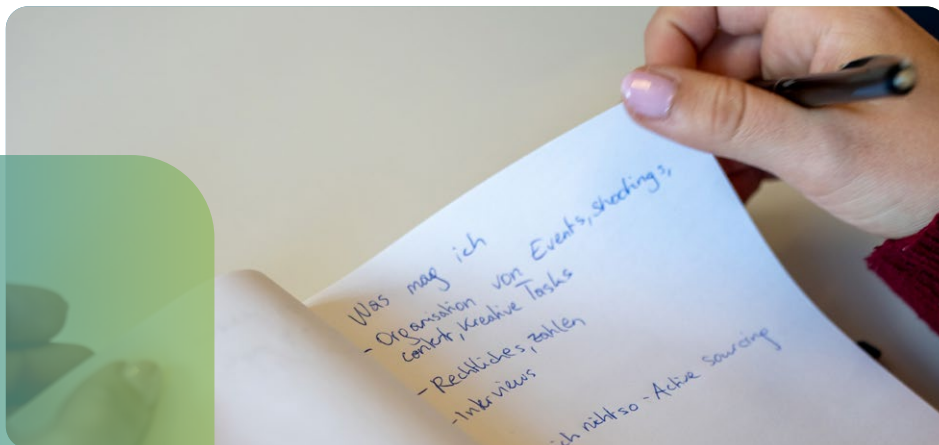 Was mag ich
- Organisation von Events, shootings,
content, kreative Tasks
- Rechtliches, Zahlen
- Interviews
ich nicht so - Active sourcing